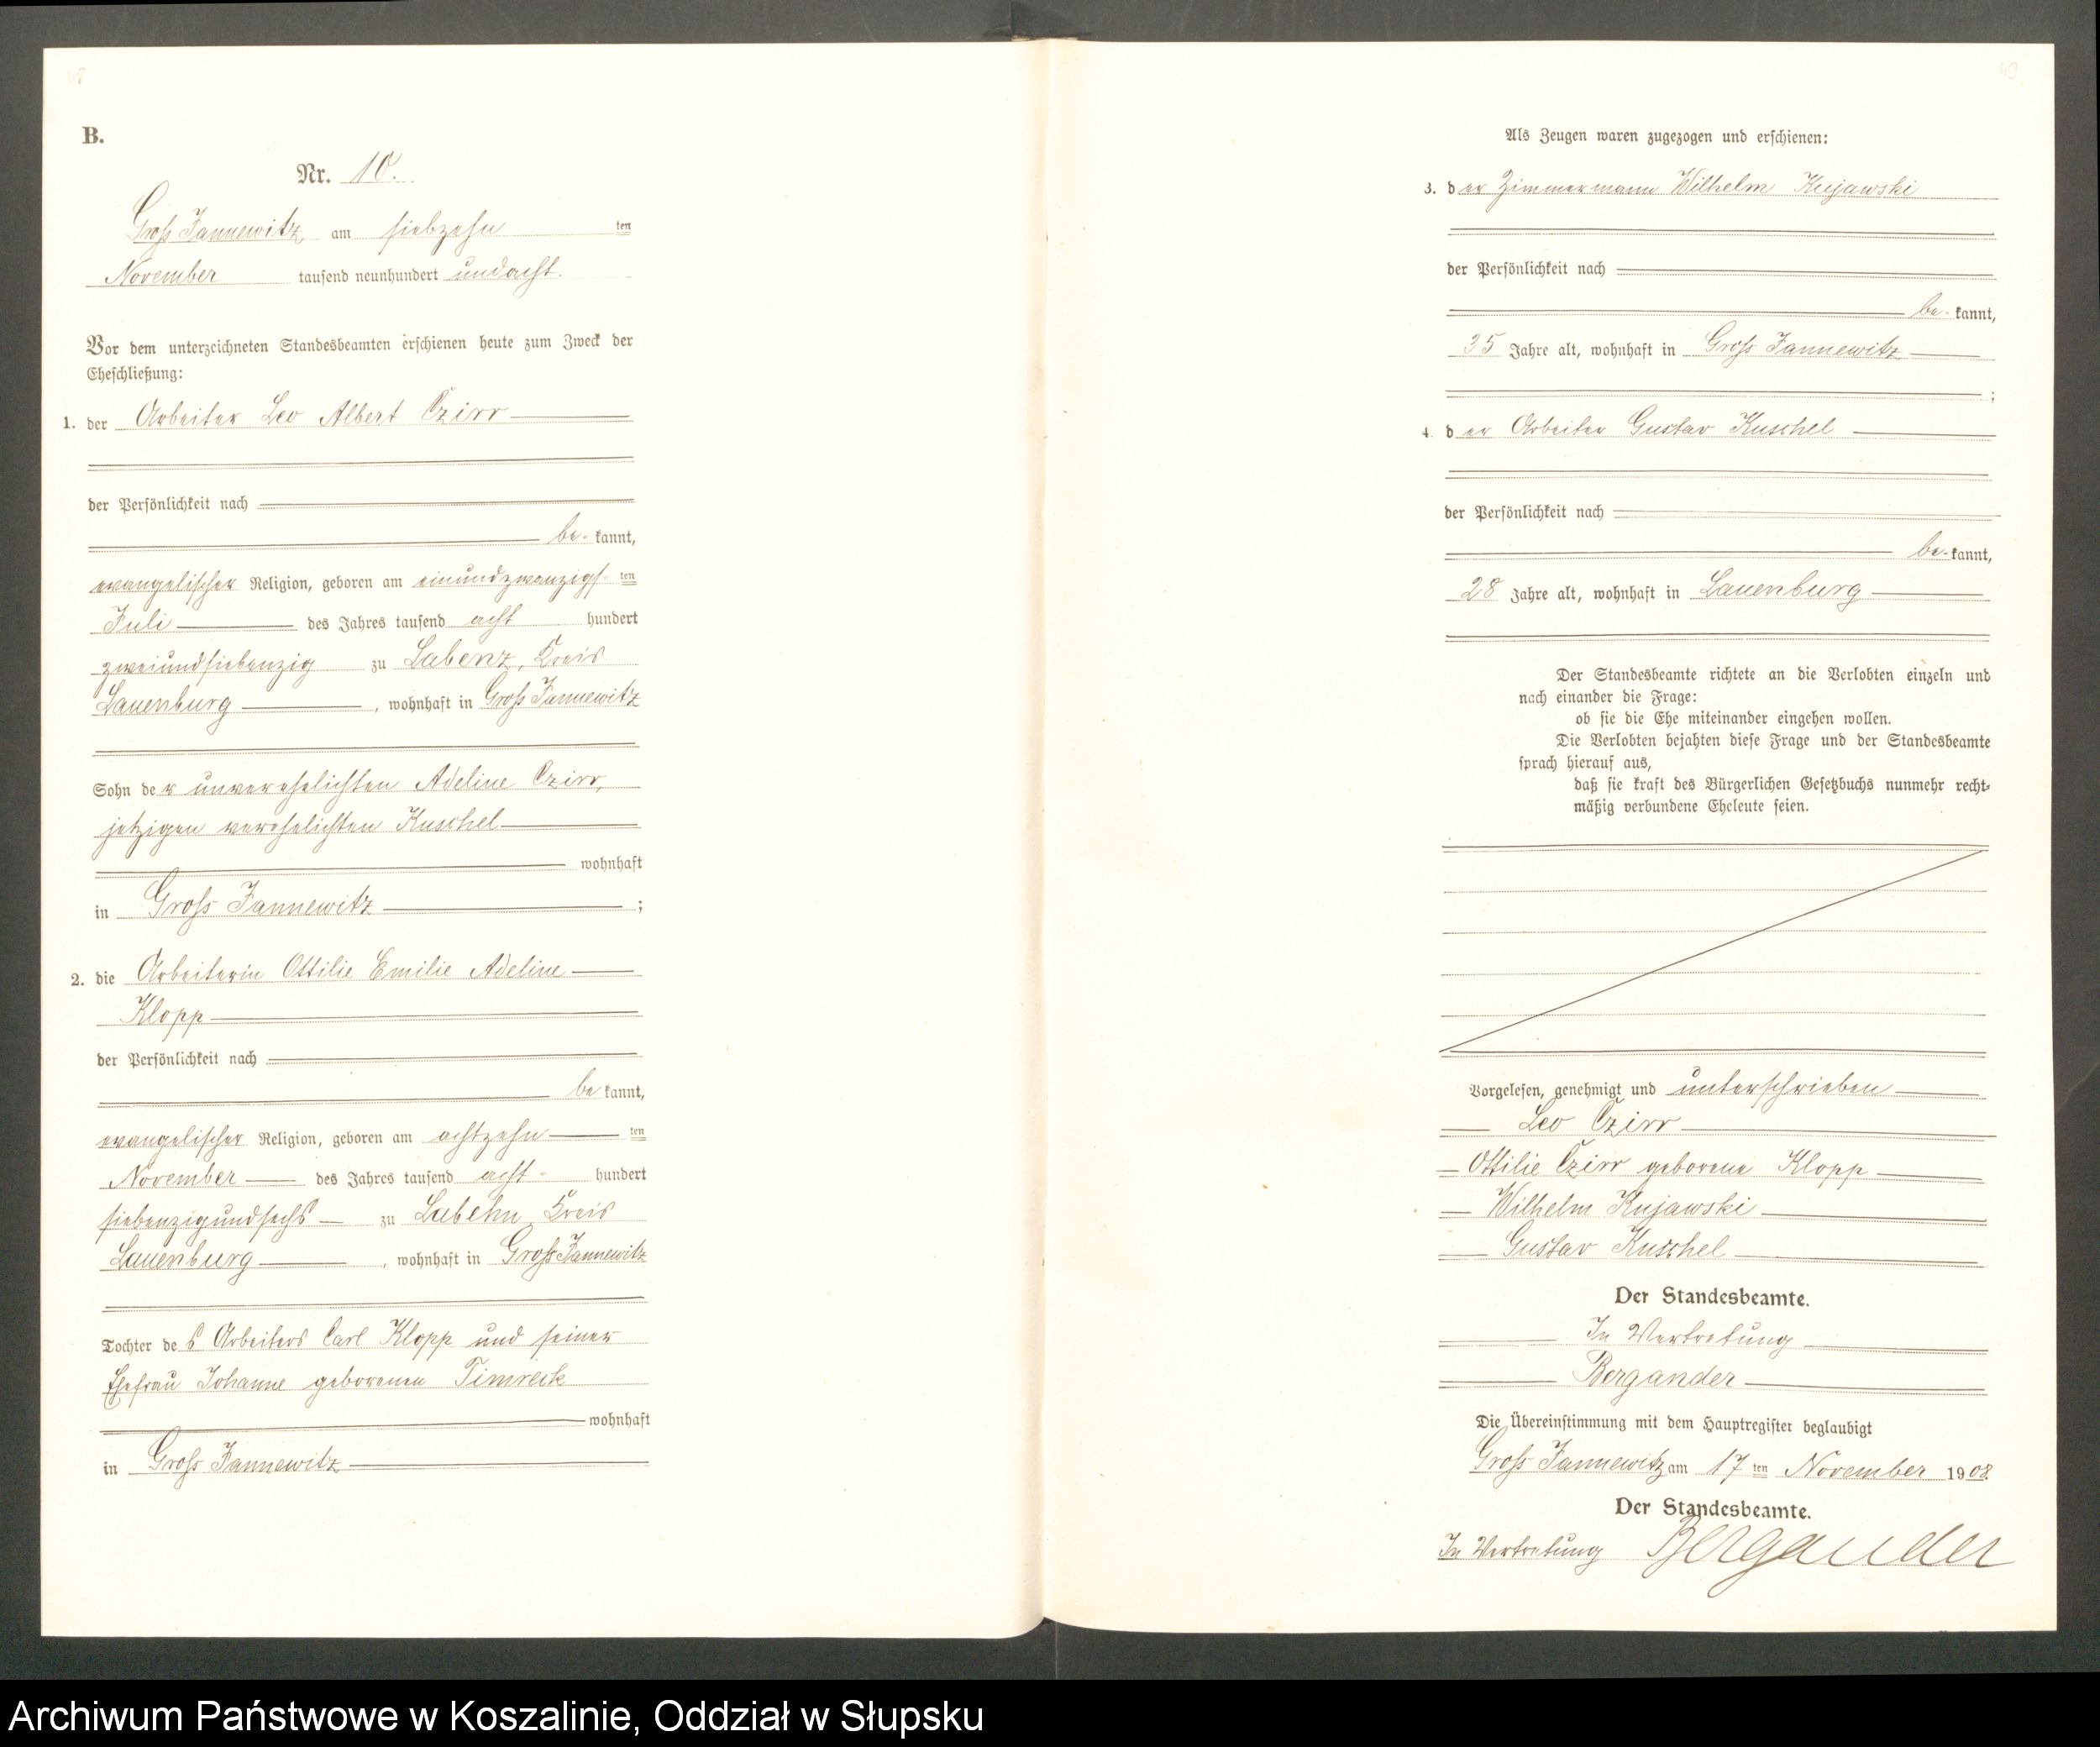 B.
Nr. 10.
Gross Jannewitz am siebzehn ten
November tausend neunhundert undacht.
Vor dem unterzeichneten Standesbeamten erschienen heute zum Zweck der
Eheschließung:
1. der Arbeiter Leo Albert Czirr
der Persönlichkeit nach
be- kannt,
evangelischer Religion, geboren am einundzwanzigs- ten
Juli des Jahres tausend acht hundert
zweiundsiebenzig zu Labenz, Kreis
Lauenburg, wohnhaft in Gross Jannewitz
Sohn der unverehelichten Adeline Czirr,
jetzigen verehelichten Kuschel
wohnhaft
in Gross Jannewitz;
2. die Arbeiterin Ottilie Emilie Adeline
Klopp
der Persönlichkeit nach
be kannt,
evangelischer Religion, geboren am achtzehn ten
November des Jahres tausend acht- hundert
siebenzigundsechs zu Labehn, Kreis
Lauenburg, wohnhaft in Gross Jannewitz
Tochter des Arbeiters Carl Klopp und seiner
Ehefrau Johanne geborenen Timreck
wohnhaft
in Gross Jannewitz
43
Als Zeugen waren zugezogen und erschienen:
3. der Zimmermann Wilhelm Kujawski
der Persönlichkeit nach
be- kannt,
35 Jahre alt, wohnhaft in Gross Jannewitz
;
4. der Arbeiter Gustav Kuschel
der Persönlichkeit nach
be- kannt,
28 Jahre alt, wohnhaft in Lauenburg
Der Standesbeamte richtete an die Verlobten einzeln und
nach einander die Frage:
ob sie die Ehe miteinander eingehen wollen.
Die Verlobten bejahten diese Frage und der Standesbeamte
sprach hierauf aus,
daß sie kraft des Bürgerlichen Gesetzbuchs nunmehr recht-
mäßig verbundene Eheleute seien.
Vorgelesen, genehmigt und unterschrieben
Leo Czirr
Ottilie Czirr geborene Klopp
Wilhelm Kujawski
Gustav Kuschel
Der Standesbeamte.
In Vertretung
Bergander
Die Übereinstimmung mit dem Hauptregister beglaubigt
Gross Jannewitz am 17 ten November 1908.
Der Standesbeamte.
In Vertretung Bergander
Archiwum Państwowe w Koszalinie, Oddział w Słupsku